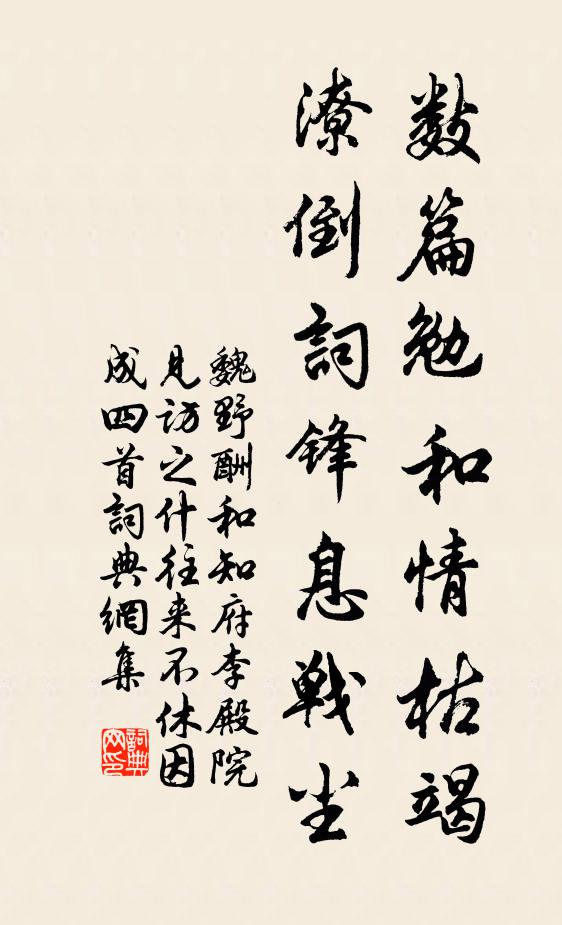 数篇勉和情枯竭
潦倒詞锋息戦尘
魏野酬和知府李殿院
見访之什往来不休因
成四首詞典網集
詞典
网印